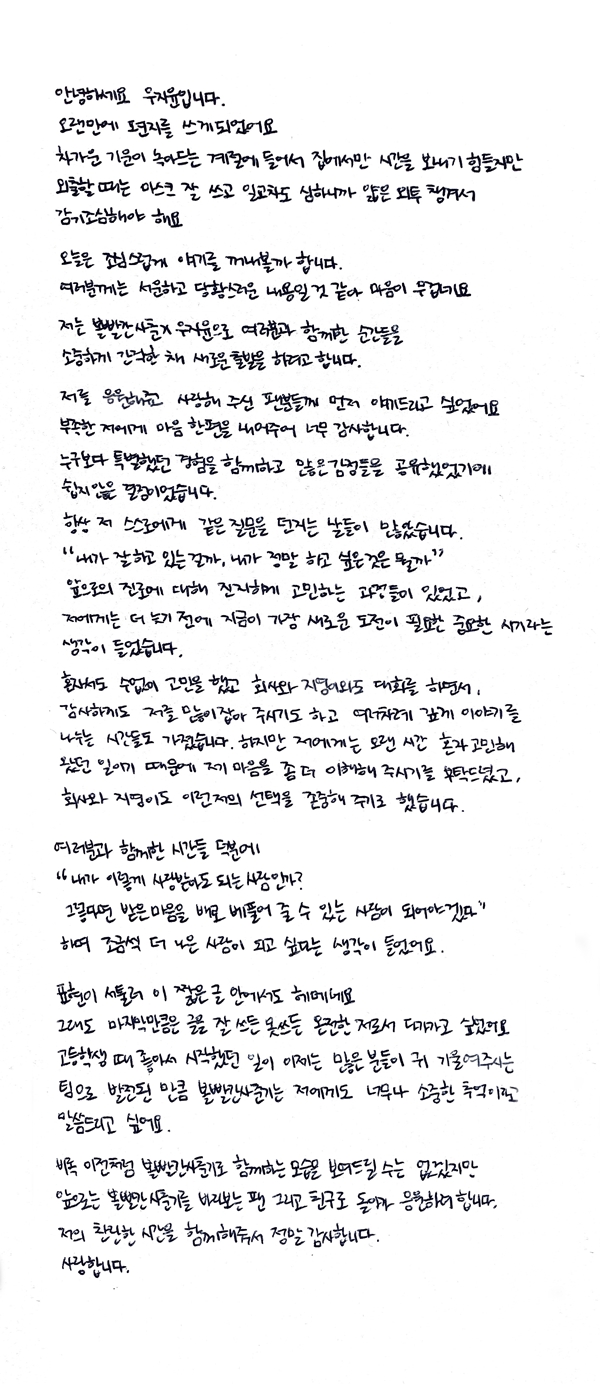 안녕하세요 우지윤입니다.
오랜만에 편지를 쓰게되었어요
차가운 기운이 녹아드는 계절에 들어서 집에서만 시간을 보내기 힘들지만
외출할 때는 마스크 잘 쓰고 일교차도 심하니까 얇은 외투 챙겨서
감기조심해야 해요
오늘은 조심스럽게 얘기를 꺼내볼까 합니다.
여러분께는 서운하고 당황스러운 내용일 것 같아 마음이 무겁네요
저는 볼빨간사춘기 우지윤으로 여러분과 함께한 순간들을
소중하게 간직한 채 새로운 출발을 하려고 합니다.
저를 응원해주고 사랑해 주신 팬분들께 먼저 얘기드리고 싶었어요
부족한 저에게 마음 한편을 내어주어 너무 감사합니다.
누구보다 특별했던 경험을 함께하고 많은 감정들을 공유했었기에
쉽지않은 결정이었습니다.
항상 저 스스로에게 같은 질문을 던지는 날들이 많았습니다.
“내가 잘하고 있는걸까, 내가 정말 하고 싶은것은 뭘까”
앞으로의 진로에 대해 진지하게 고민하는 과정들이 있었고,
저에게는 더 늦기 전에 지금이 가장 새로운 도전이 필요한 중요한 시기라는
생각이 들었습니다.
혼자서도 수없이 고민을 했고 회사와 지영이와도 대화를 하면서,
감사하게도 저를 많이잡아 주시기도 하고 여러차례 깊게 이야기를
나누는 시간들도 가졌습니다. 하지만 저에게는 오랜 시간 혼자 고민해
왔던 일이기 때문에 제 마음을 좀 더 이해해 주시기를 부탁드렸고,
회사와 지영이도 이런저의 선택을 존중해 주기로 했습니다.
여러분과 함께한 시간들 덕분에
“내가 이렇게 사랑받아도 되는 사람인가?
그렇다면 받은 마음을 배로 베풀어 줄 수 있는 사람이 되어야겠다”
하며 조금씩 더 나은 사람이 되고 싶다는 생각이 들었어요.
표현이 서툴러 이 짧은 글 안에서도 헤메네요
그래도 마지막만큼은 글을 잘 쓰든 못쓰든 온전한 저로서 다가가고 싶었어요
고등학생 때 좋아서 시작했던 일이 이제는 많은 분들이 귀 기울여주시는
팀으로 발전된 만큼 볼빨간사춘기는 저에게도 너무나 소중한 추억이라고
말씀드리고 싶어요.
비록 이전처럼 볼빨간사춘기로 함께하는 모습을 보여드릴 수는 없겠지만
앞으로는 볼빨간사춘기를 바라보는 팬 그리고 친구로 돌아가 응원하려 합니다.
저의 찬란한 시간을 함께해줘서 정말 감사합니다.
사랑합니다.